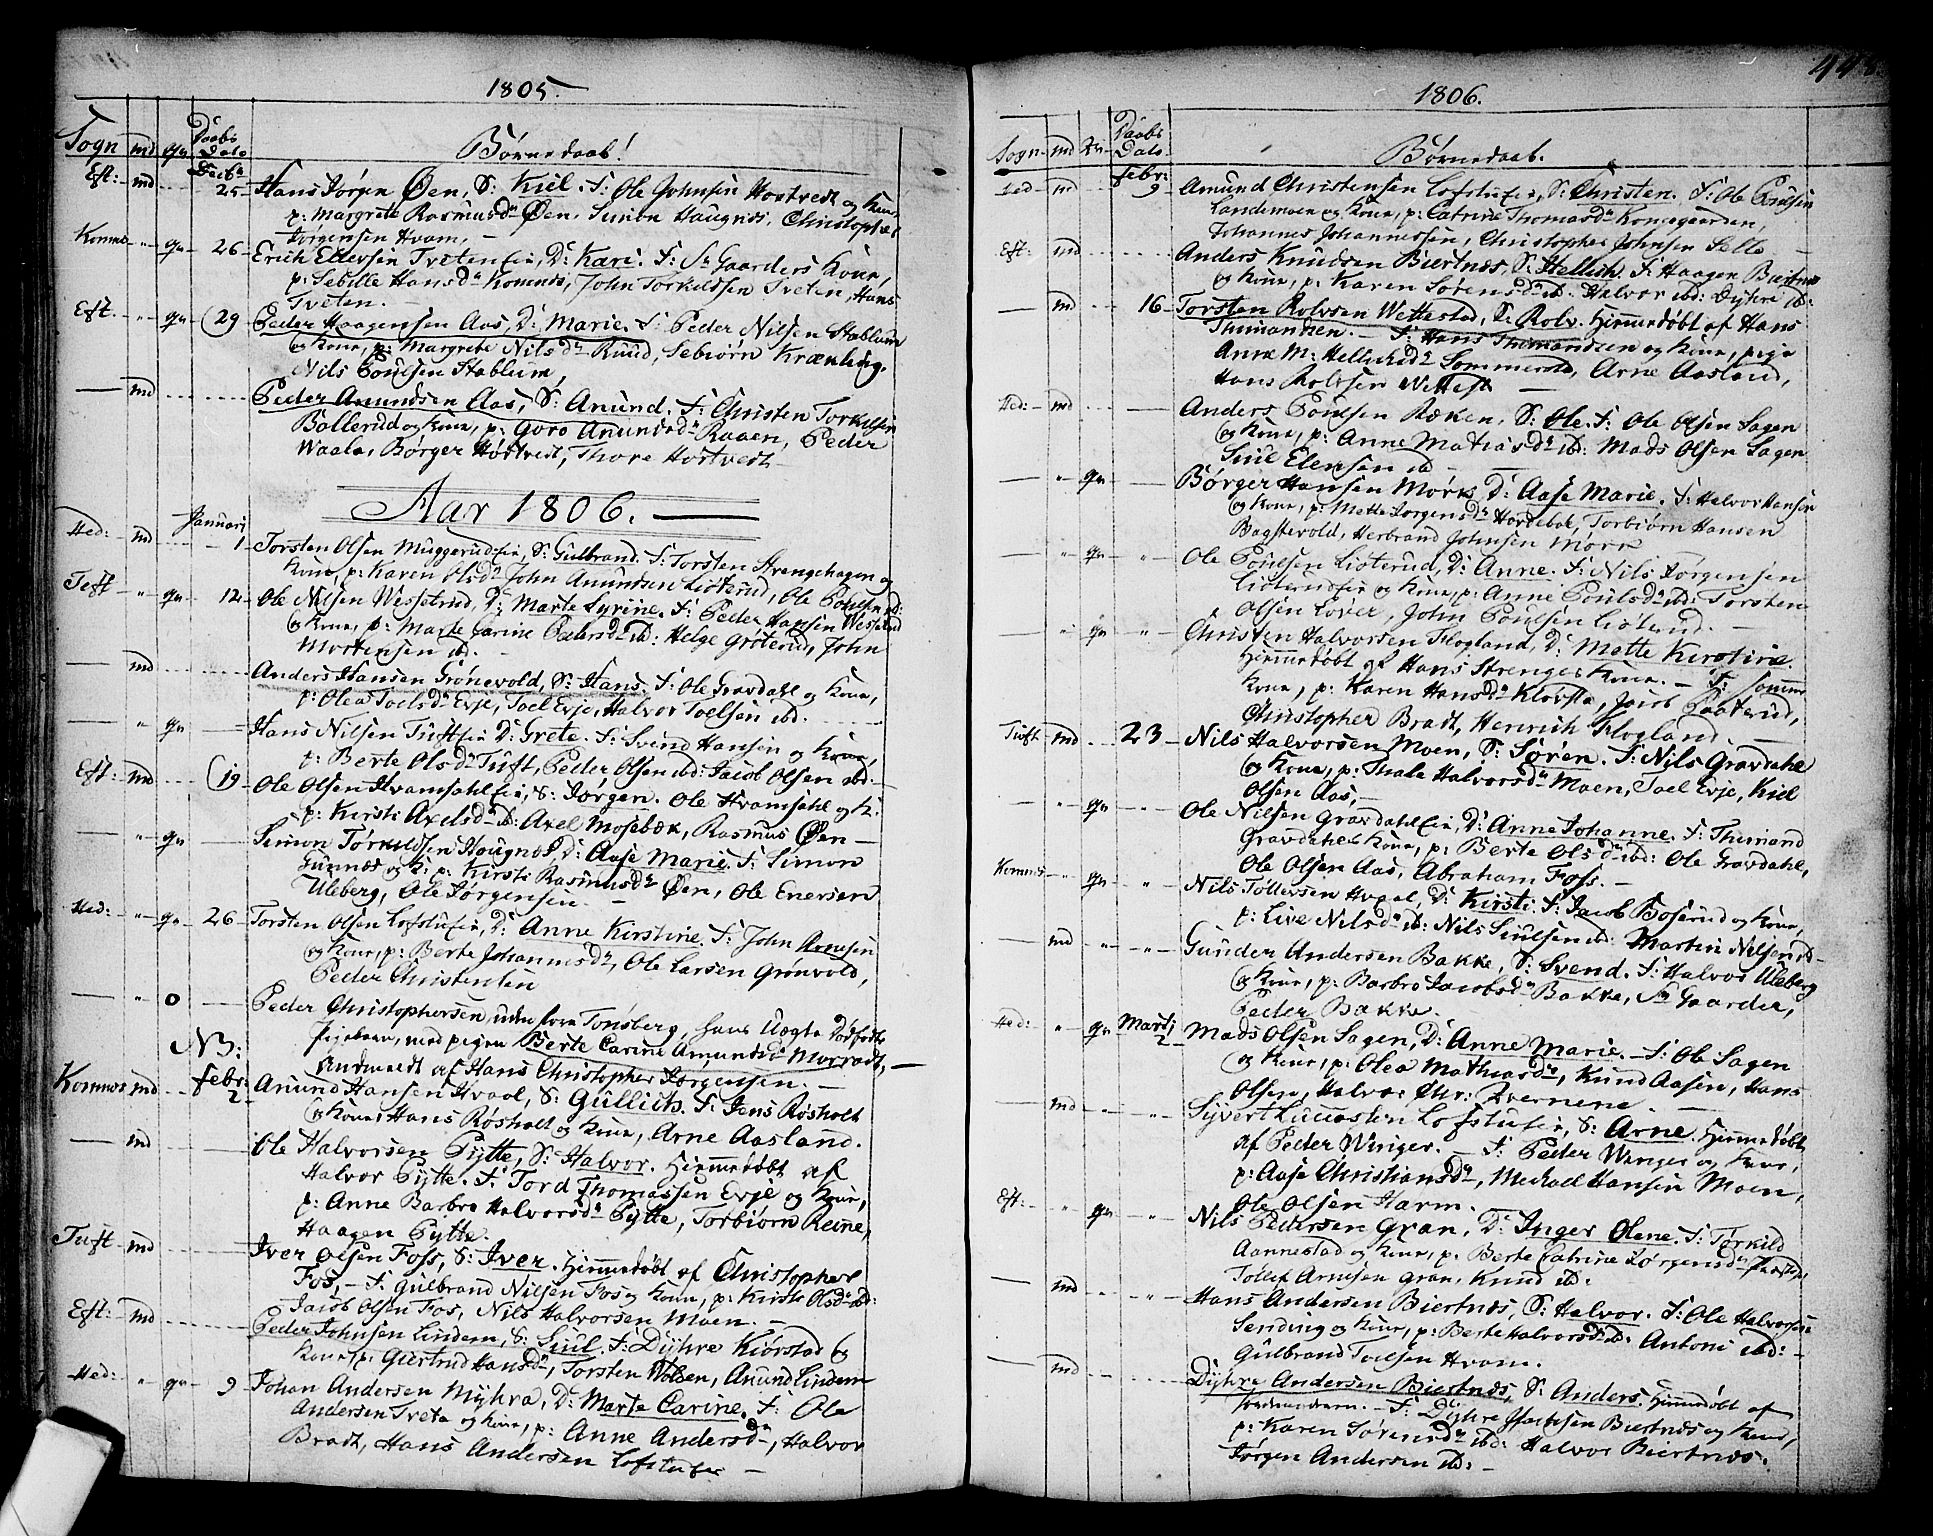 1805.
Sogn md qu Daabs Dato Børnedaab!
Decbr
Eft: md 25 Hans Jørgen Øen, S: Kiel. F: Ole Johnsen Hortvedt og Kone,
p: Margrete Rasmusdr Øen, Simon Haugnæs, Christopher
Jørgensen Hvam. —
Komnes " qu 26 Erich Ellevsen Tveteneie, D: Kari. F: Sr Gaarders Kone,
p: Sebille Hansdr Komnes, John Torkildsen Tveten, Hans
Tveten.
Eft. " qu 29 Peder Haagensen Aas, D: Marie. F: Peder Nilsen Stablum
og Kone, p: Margrete Nilsdr Ruud, Sebiørn Krænling,
Nils Poulsen Stablum,
— md Peder Amundsen Aas, S: Anund. F: Christen Torkilsen
Bollerud og Kone, p: Goro Anundsdr Raaen, Peder
Waala, Børger Hortvedt, Thore Hortvedt —
Aar 1806. —
Januari
Hed: md 1 Torsten Olsen Muggerudeie, S: Gulbrand. F: Torsten Strengehagen og
Kone, p: Karen Olsdr John Anundsen Lioterud, Ole Poulsen ibd:
Teft " qu 12 Ole Nilsen Wesselrud, D: Marte Syrine. F: Peder Hansen Wesselrud
og Kone, p: Marte Carine Pedersdr ibd: Helge Groterud, John
Mortensen ibd.
— md Anders Hansen Grönevold, S: Hans. F: Ole Gravdahl og Kone,
p: Olea Toelsdr Evje, Toel Evje, Halvor Toelsen ibd.
" qu — Hans Nilsen Tufteie D: Grete. F: Svend Hansen og Kone,
p: Berte Olsdr Tuft, Peder Olsen ibd: Jacob Olsen ibd. —
Eft: md 19 Ole Olsen Hvamsahleie, S: Jørgen. Ole Hvamsahl og K.
p: Kirsti Axelsdr ib: Axel Mosebæk, Rasmus Øen —
— " qu Simon Torkildsen Hougnæs, D: Aase Marie. F: Simon
Gunnæs og K: p: Kirsti Rasmusdr Øen, Ole Enersen
Uleberg, Ole Jørgensen. —
Hed: " qu 26 Torsten Olsen Lofstueie, D: Anne Kirstine. F: John Arnesen
og Kone, p: Berte Johannisdr, Ole Larsen Grönvold,
Peder Christensen
— " o — Peder Christophersen, uden for Tonsberg, hans
med pigen Berte Carine Amundsdr Morradt, —
NB: af Hans Christopher Jørgensen. —
Komnes md Febr: 2 Anund Hansen Hvaal, S: Gullich. F: Jens Røsholt
og Kone Hans Røsholt og Kone, Arne Aasland.
— md Ole Halvorsen Pytte, S: Halvor. Hjemmedøbt af
Halvor Pytte. F: Tord Thomassen Evje og Kone,
p: Anne Barbro Halvorsdr Pytte, Torbiørn Reine,
Haagen Pytte.
Tuft md Iver Olsen Foss, S: Iver. Hjemmedøbt af Christopher
Fos, — F: Gulbrand Nilsen Fos og Kone, p: Kirsti Olsdr ibd:
Jacob Olsen Fos, Nils Halvorsen Moen. —
Eft: md Peder Johnsen Lindem, S: Siul. F: Dyhre Kiørstad og
Kone, p: Giertrud Hansdr, Torsten Wolsen, Anund Lindem
Hed: " qu 9 Johan Andersen Myhra, D: Marte Carine. F: Ole
Andersen Tveta og Kone, p: Anne Andersdr, Halvor
Bradt, Hans Andersen Lofstueie —
448
1806.
Sogn md Daabs Dato Børnedaab.
Febr:
Hed md 9 Amund Christensen Lofstueeie, S: Christen. F: Ole Poulsen
Landemoen og Kone, p: Catrine Thomasdr Kongsgaarden,
Johannes Johannessen, Christopher Johnsen Selle —
Eft: md Anders Knudsen Biertnæs, S: Hellich. F: Haagen Biertnæs
og Kone, p: Karen Sørensdr ib. Halvor ibd: Dyhre ib:
md 16 Torsten Rolvsen Wettestad, S: Rolv. Hjemmedøbt af Hans
Thimansen. — F: Hans Thimandsen og Kone, pige
Anne M: Hellichsdr Sommerold, Arne Aasland,
Hans Rolvsen Wettest —
Hed: md — Anders Poulsen Ræken, S: Ole. F: Ole Olsen Sagen
og Kone, p: Anne Matiasdr ibd: Mads Olsen Sagen
Siul Elensen ib —
— " qu — Børger Hansen Mørk, D: Aase Marie. F: Halvor Hansen
og Kone, p: Mette Jørgensdr Hordebek, Torbiørn Hansen
Bagstevold, Herbrand Johnsen Mørk
— " qu " Ole Poulsen Lioterud, D: Anne. F: Nils Jørgensen
Lioterudeie og Kone, p: Anne Poulsdr ibd: Torsten
Olsen Loier, John Poulsen Lioterud. —
— " qu " Christen Halvorsen Skogland, D: Mette Kirstine.
Hjemmedøbt af Hans Strenges Kone. — F:
Kone, p: Karen Hansdr Klovsta, Jacob Paaterud,
Christopher Bradt, Henrich Skogland. —
Tuft md 23 Nils Halvorsen Moen, S: Søren. F: Nils Gravdahl
og Kone, p: Thale Halvorsdr Moen, Toel Evje, Kiel
Olsen Aas, —
— " qu " Ole Nilsen Gravdahleie, D: Anne Johanne. F: Thimand
Gravdahls Kone, p: Berte Olsdr ibd: Ole Gravdahl,
Ole Olsen Aas, Abraham Foss. —
Komnes " qu " Nils Tollersen Hvaal, D: Kirsti. F: Jacob Boserud og Kone,
p: Live Nilsdr ib: Nils Siulsen ibd: Martin Nilsen ibd —
— md " Gunder Andersen Bakke, S: Svend. F: Halvor Uleberg
og Kone, p: Barbro Jacobsdr Bakke, Sr Gaarder,
Peder Bakke.
Hed: " qu Martj 2 Mads Olsen Sagen, D: Anne Marie. — F: Ole Sagen
og Kone, p: Olea Mathiasdr, Knud Aasen, Hans
Olsen, Halvor Chr: Kvernene. —
— md " Syvert Lucassen Lofstueie, S: Arne. Hjemmedøbt
af Peder Winger. — F: Peder Winger og Kone,
p: Aase Christiansdr, Michael Hansen Moen,
Ole Olsen Harm.
Eft: " qu " Nils Pedersen Gran, D: Inger Olene. F: Torkild
Aannestad og Kone, p: Berte Catrine Jørgensdr
Tollef Arnesen Gran, Knud ib:
— md " Hans Andersen Biertnæs, S: Halvor. F: Ole Halvorsen
Sending og Kone, p: Berte Halvorsdr ib: Antoni ibd: —
Gulbrand Toelsen Hvam.
— md Dyhre Andersen Biertnæs, S: Anders. Hjemmedøbt af
— F: Dyhre Jacobsen Biertnæs og Kone,
p: Karen Sørensdr ibd: Halvor Biertnæs.
Jørgen Andersen ib: —